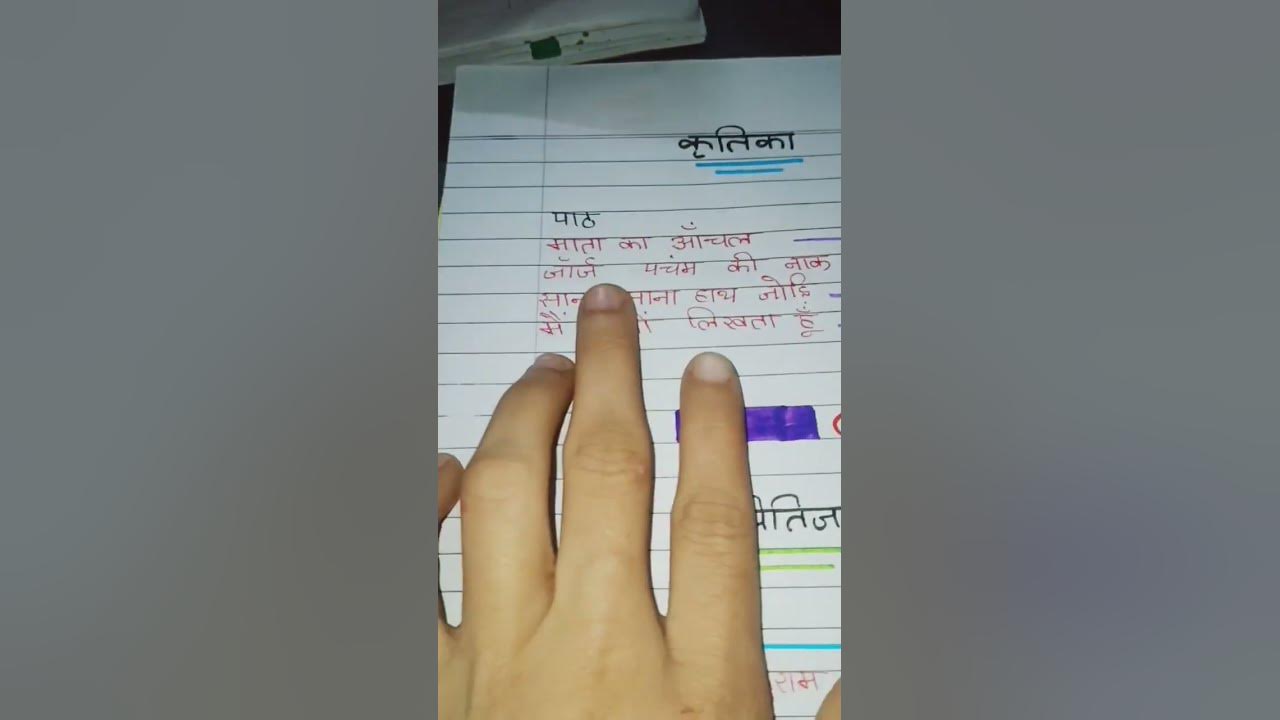 कृतिका
पाठ
माता का आँचल
जॉर्ज पचंम की नाक
हाथ जोड़ि
मैं लिखता हूँ
राम